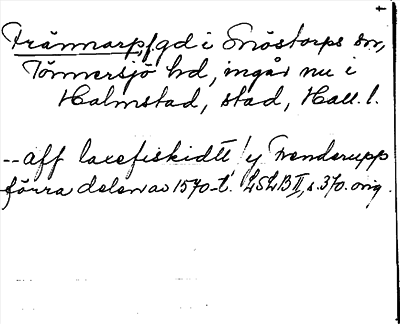 Trännarp, f. gd i Snöstorps sn,
Tönnersjö hd, ingår nu i
Halmstad, stad, Hall. l.
-- aff laxefiskidtt y Trenderupp
förra delen av 1570-t. LSLB II, s. 370. orig.